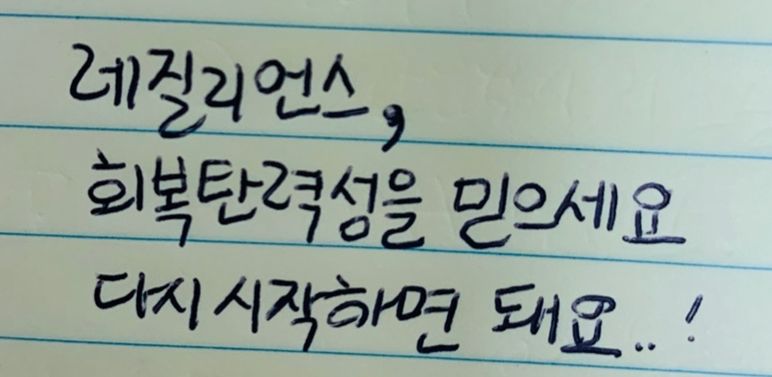 레질리언스,
회복탄력성을 믿으세요
다시 시작하면 돼요..!